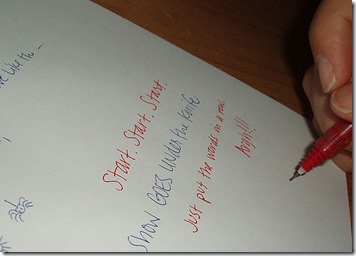 like the
Start. Start. Start.
Show GOES under the knife.
Just put the words in a row.
Argh!!!